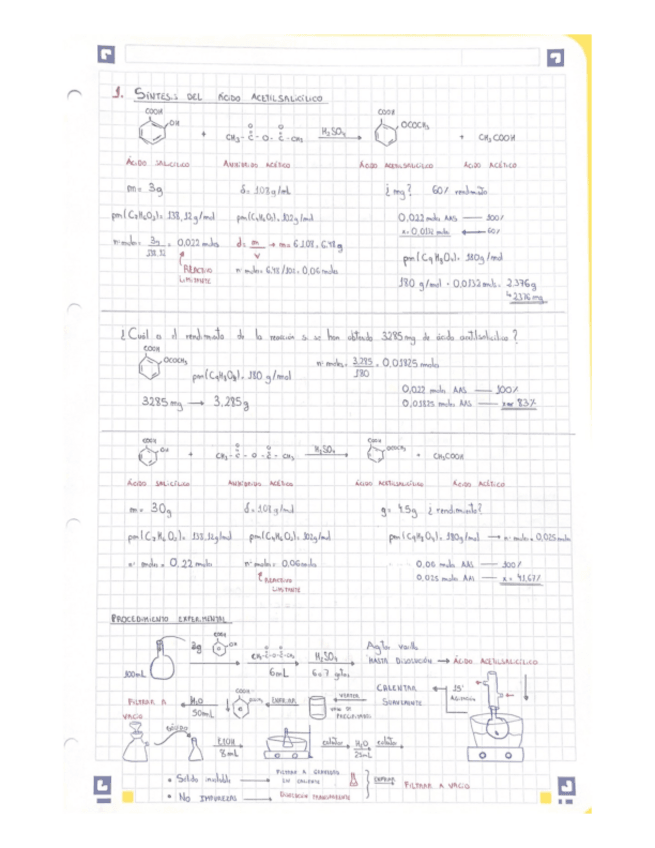 1. SÍNTESIS DEL ÁCIDO ACETILSALICÍLICO
COOH
OH
+
CH₃-C-O-C-CH₃
O O
H₂SO₄
COOH
OCOCH₃
+ CH₃COOH
ÁCIDO SALICÍLICO ANHÍDRIDO ACÉTICO ÁCIDO ACETILSALICÍLICO ÁCIDO ACÉTICO
m= 3g δ= 1.08 g/mL ¿mg? 60% rendimiento
pm(C₇H₆O₃)= 138,12 g/mol pm(C₄H₆O₃)= 102 g/mol 0,022 moles AAS — 100%
x= 0,0132 moles 60%
nº moles= 3g/138,12 = 0,022 moles d= m/V → m= 6·1.08= 6.48g
REACTIVO LIMITANTE
nº moles= 6.48/102= 0,06 moles
pm(C₉H₈O₄)= 180g/mol
180 g/mol · 0,0132 mols= 2.376g
2376 mg
¿Cuál es el rendimiento de la reacción si se han obtenido 3285 mg de ácido acetilsalicílico?
COOH
OCOCH₃
pm(C₉H₈O₄)= 180 g/mol
nº moles= 3.285/180 = 0,01825 moles
3285 mg → 3.285g
0,022 moles AAS — 100%
0,01825 moles AAS — x= 83%
COOH
OH
+ CH₃-C-O-C-CH₃
O O
H₂SO₄
COOH
OCOCH₃
+ CH₃COOH
ÁCIDO SALICÍLICO ANHÍDRIDO ACÉTICO ÁCIDO ACETILSALICÍLICO ÁCIDO ACÉTICO
m= 30g δ= 1.08 g/mol g= 4.5g ¿rendimiento?
pm(C₇H₆O₃)= 138,12g/mol pm(C₄H₆O₃)= 102g/mol pm(C₉H₈O₄)= 180g/mol → nº moles= 0,025 mols
nº moles= 0,22 moles nº moles= 0,06 moles
REACTIVO LIMITANTE
0,06 moles AAS — 100%
0,025 moles AAS — x= 41,67%
PROCEDIMIENTO EXPERIMENTAL
100mL
3g
COOH
OH
CH₃-C-O-C-CH₃
6mL
H₂SO₄
6o7 gotas
HASTA DISOLUCIÓN → ÁCIDO ACETILSALICÍLICO
FILTRAR A VACÍO
H₂O
50mL
COOH
OCOCH₃
ENFRIAR
VERTER
VASO DE PRECIPITADOS
CALENTAR SUAVEMENTE
15'
AGITACIÓN
SÓLIDO
EtOH
8mL
calentar
H₂O
25mL
calentar
• Sólido insoluble → FILTRAR A GRAVEDAD EN CALIENTE
• NO IMPUREZAS → DISOLUCIÓN TRANSPARENTE
ENFRIAR
FILTRAR A VACÍO